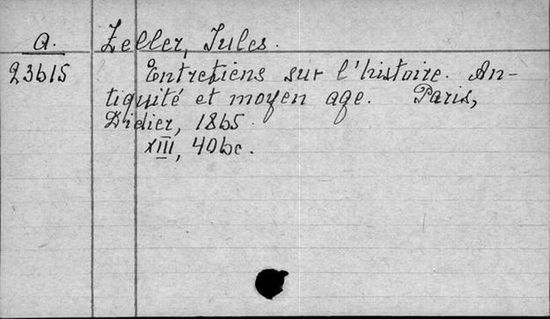 a. Zeller, Jules.
23615 Entretiens sur l'histoire. An-
tiquité et moyen age. Paris,
Didier, 1865.
XIII, 406c.